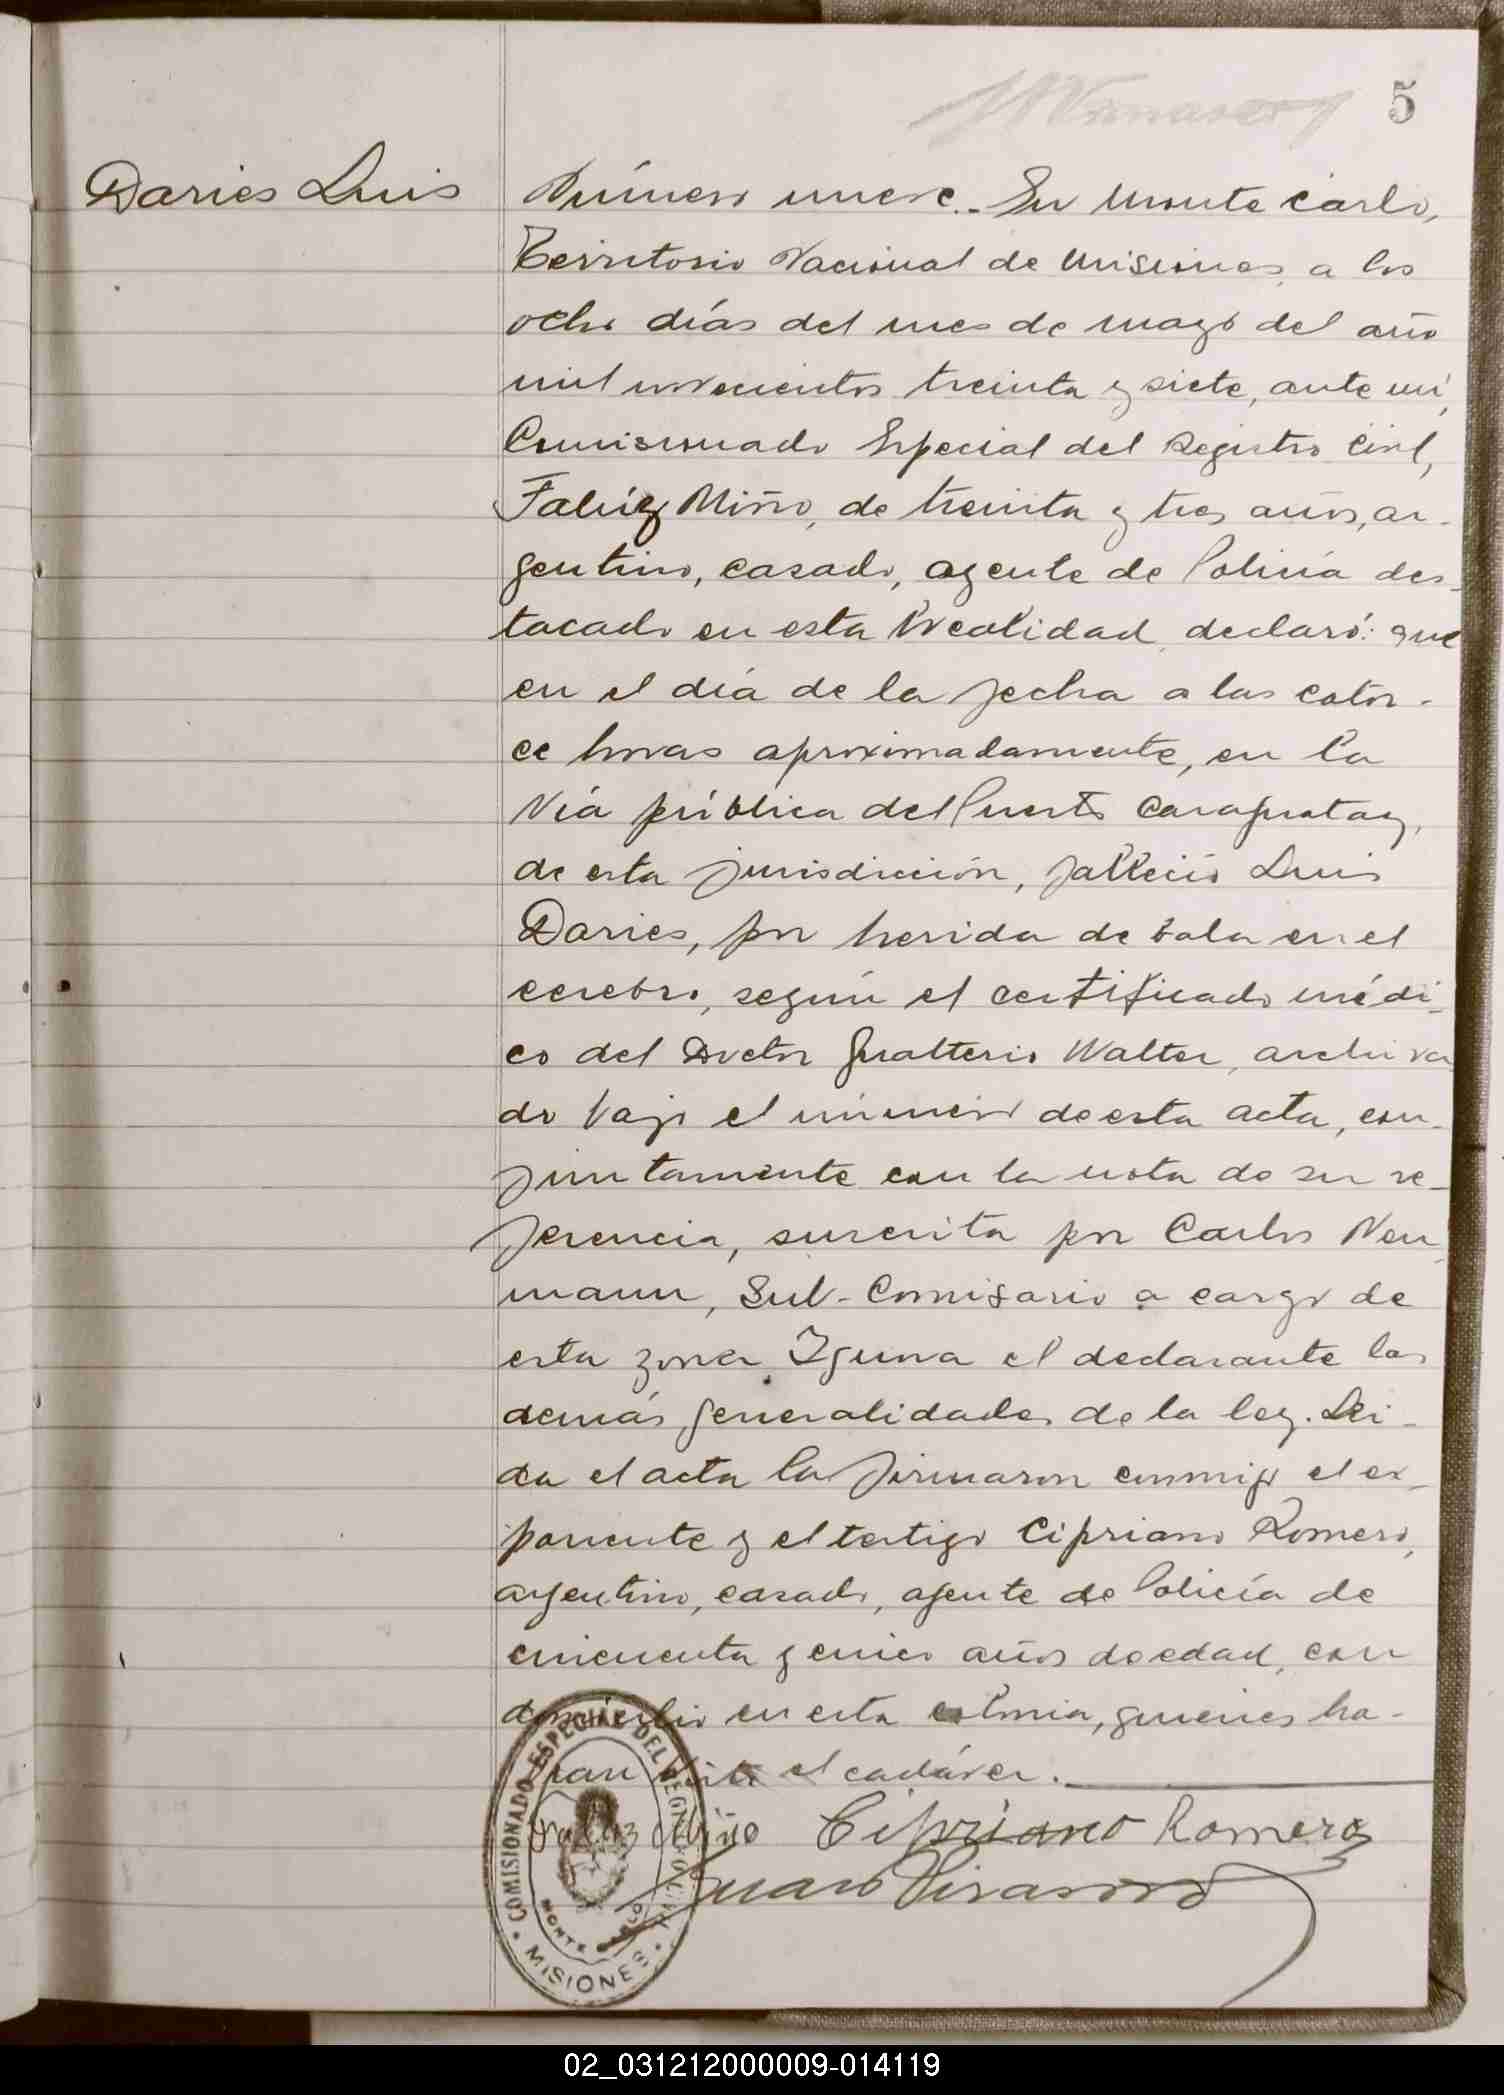 5
Daries Luis
Número nueve.- En Monte Carlo,
Territorio Nacional de Misiones, a los
ocho días del mes de mayo del año
mil novecientos treinta y siete, ante mí,
Comisionado Especial del Registro Civil,
Miño, de treinta y tres años, ar-
gentino, casado, agente de Policía des-
tacado en esta localidad, declaró: que
en el día de la fecha a las cator-
ce horas aproximadamente, en la
Vía pública del Puerto Caraguatay,
de esta jurisdicción, falleció Luis
Daries, por herida de bala en el
cerebro, según el certificado médi-
co del Doctor Gualterio Walter, archiva
do bajo el número de esta acta, con-
juntamente con la nota de su re-
ferencia, suscrita por Carlos Neu
mann, Sub-Comisario a cargo de
esta zona. Ignora el declarante las
demás generalidades de la ley. Leí-
da el acta la firmaron conmigo el ex-
ponente y el testigo Cipriano Romero,
argentino, casado, agente de Policía de
cincuenta y cinco años de edad, con
domicilio en esta colonia, quienes ha-
bían visto el cadáver.
Miño Cipriano Romero
COMISIONADO ESPECIAL DEL REGISTRO CIVIL
MONTE CARLO
MISIONES
02_031212000009-014119